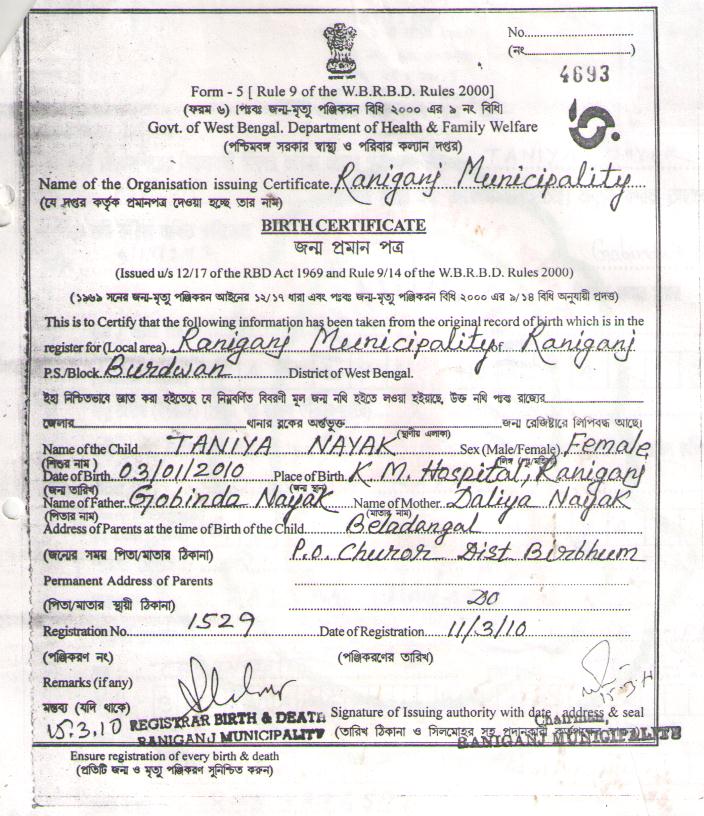 No..............................
(নং..............................)
4693
Form - 5 [ Rule 9 of the W.B.R.B.D. Rules 2000]
(ফরম ৬) [পঃবঃ জন্ম-মৃত্যু পঞ্জিকরন বিধি ২০০০ এর ৯ নং বিধি]
Govt. of West Bengal. Department of Health & Family Welfare
(পশ্চিমবঙ্গ সরকার স্বাস্থ্য ও পরিবার কল্যান দপ্তর)
Name of the Organisation issuing Certificate. Raniganj Municipality
(যে দপ্তর কর্তৃক প্রমানপত্র দেওয়া হচ্ছে তার নাম)
BIRTH CERTIFICATE
জন্ম প্রমান পত্র
(Issued u/s 12/17 of the RBD Act 1969 and Rule 9/14 of the W.B.R.B.D. Rules 2000)
(১৯৬৯ সনের জন্ম-মৃত্যু পঞ্জিকরন আইনের ১২/১৭ ধারা এবং পঃবঃ জন্ম-মৃত্যু পঞ্জিকরন বিধি ২০০০ এর ৯/১৪ বিধি অনুযায়ী প্রদত্ত)
This is to Certify that the following information has been taken from the original record of birth which is in the
register for (Local area). Raniganj Municipality of Raniganj
P.S./Block. Burdwan District of West Bengal.
ইহা নিশ্চিতভাবে জ্ঞাত করা হইতেছে যে নিম্নবর্ণিত বিবরণী মূল জন্ম নথি হইতে লওয়া হইয়াছে, উক্ত নথি পঃবঃ রাজ্যের
জেলার থানার ব্লকের অন্তর্ভুক্ত জন্ম রেজিষ্টারে লিপিবদ্ধ আছে।
(স্থানীয় এলাকা)
Name of the Child. TANIYA NAYAK Sex (Male/Female). Female
(শিশুর নাম)
Date of Birth. 03/01/2010 Place of Birth. K.M. Hospital, Raniganj
(জন্ম তারিখ) (জন্ম স্থান)
Name of Father. Gobinda Nayak Name of Mother. Daliya Nayak
(পিতার নাম) (মাতার নাম)
Address of Parents at the time of Birth of the Child. Beladangal
(জন্মের সময় পিতা/মাতার ঠিকানা) P.O. Churor Dist Birbhum
Permanent Address of Parents
(পিতা/মাতার স্থায়ী ঠিকানা) Do
Registration No. 1529 Date of Registration. 11/3/10
(পঞ্জিকরণ নং) (পঞ্জিকরণের তারিখ)
Remarks (if any)
মন্তব্য (যদি থাকে)
15.3.10 REGISTRAR BIRTH & DEATH
RANIGANJ MUNICIPALITY
Signature of Issuing authority with date, address & seal
Chairman,
RANIGANJ MUNICIPALITY
Ensure registration of every birth & death
(প্রতিটি জন্ম ও মৃত্যু পঞ্জিকরণ সুনিশ্চিত করুন)